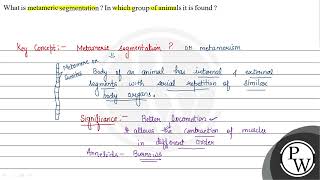 What is metameric segmentation ? In which group of animals it is found ?
Key Concept:- Metameric segmentation ? or metamerism
Metamere or
Somites
Body of an animal has internal & external
segments with serial repetition of similar
body organs.
Significance:- Better locomotion
It allows the contraction of muscles
in different order
Annelids - Burrows
PW